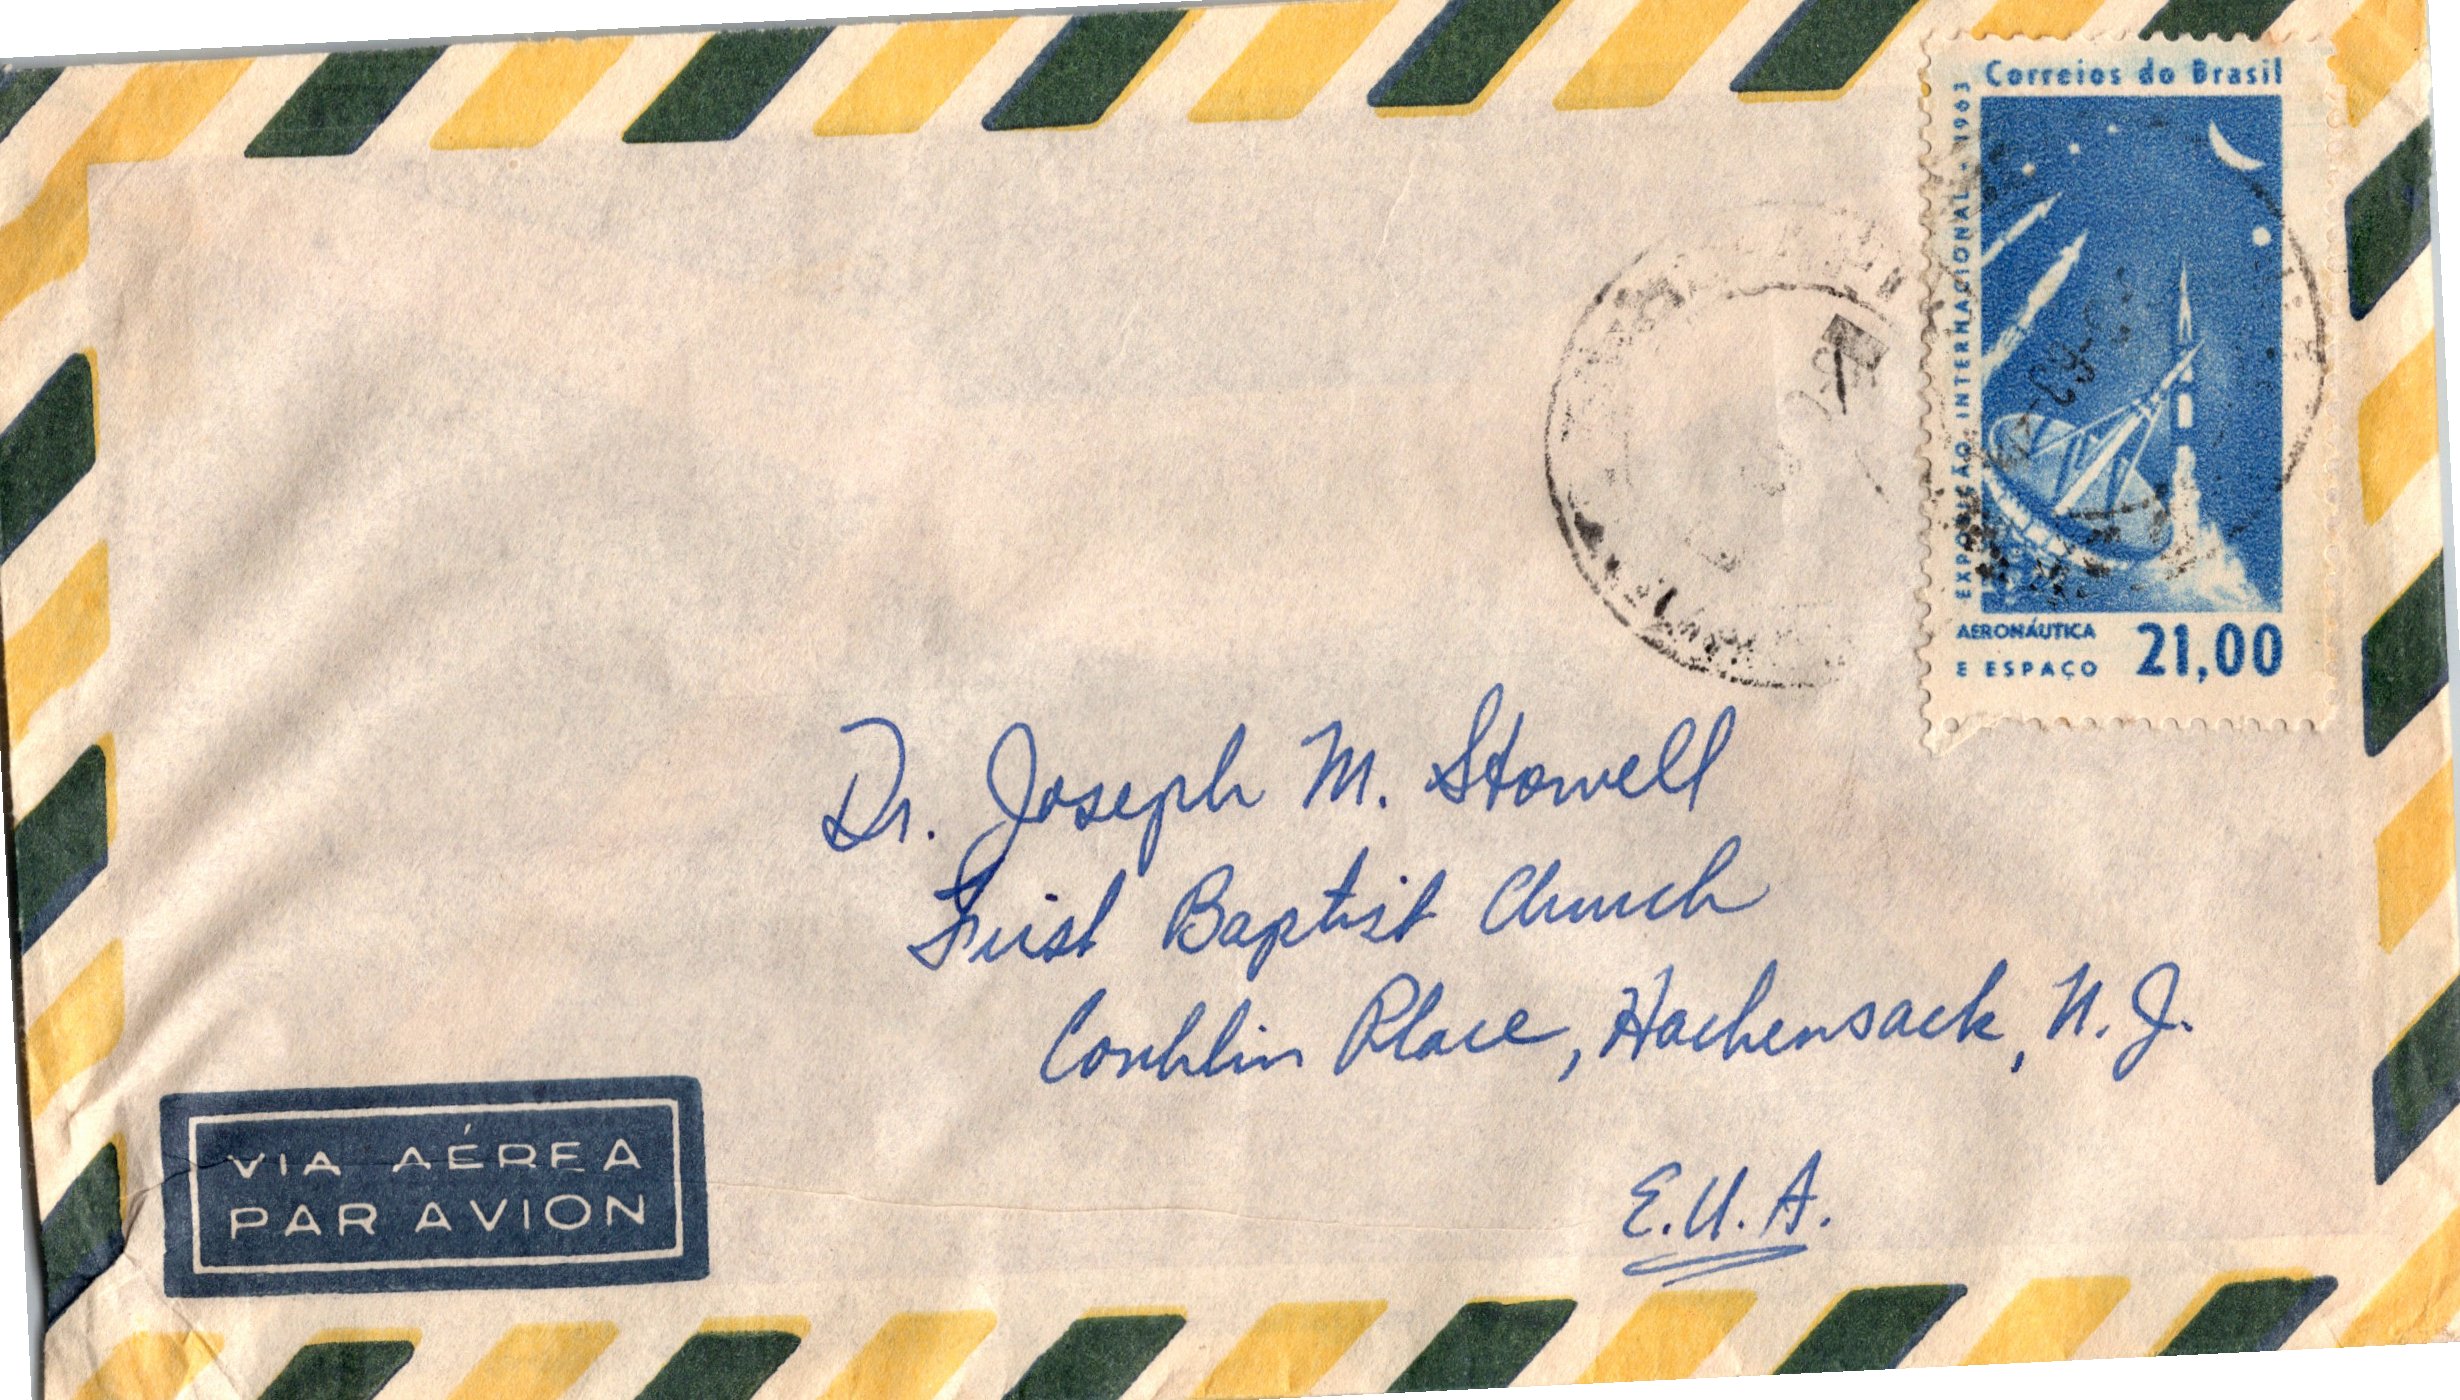 Correios do Brasil
EXPOSIÇÃO INTERNACIONAL - 1963
AERONÁUTICA
E ESPAÇO
21,00
Dr. Joseph M. Stowell
First Baptist Church
Conklin Place, Hackensack, N. J.
E.U.A.
VIA AÉREA
PAR AVION